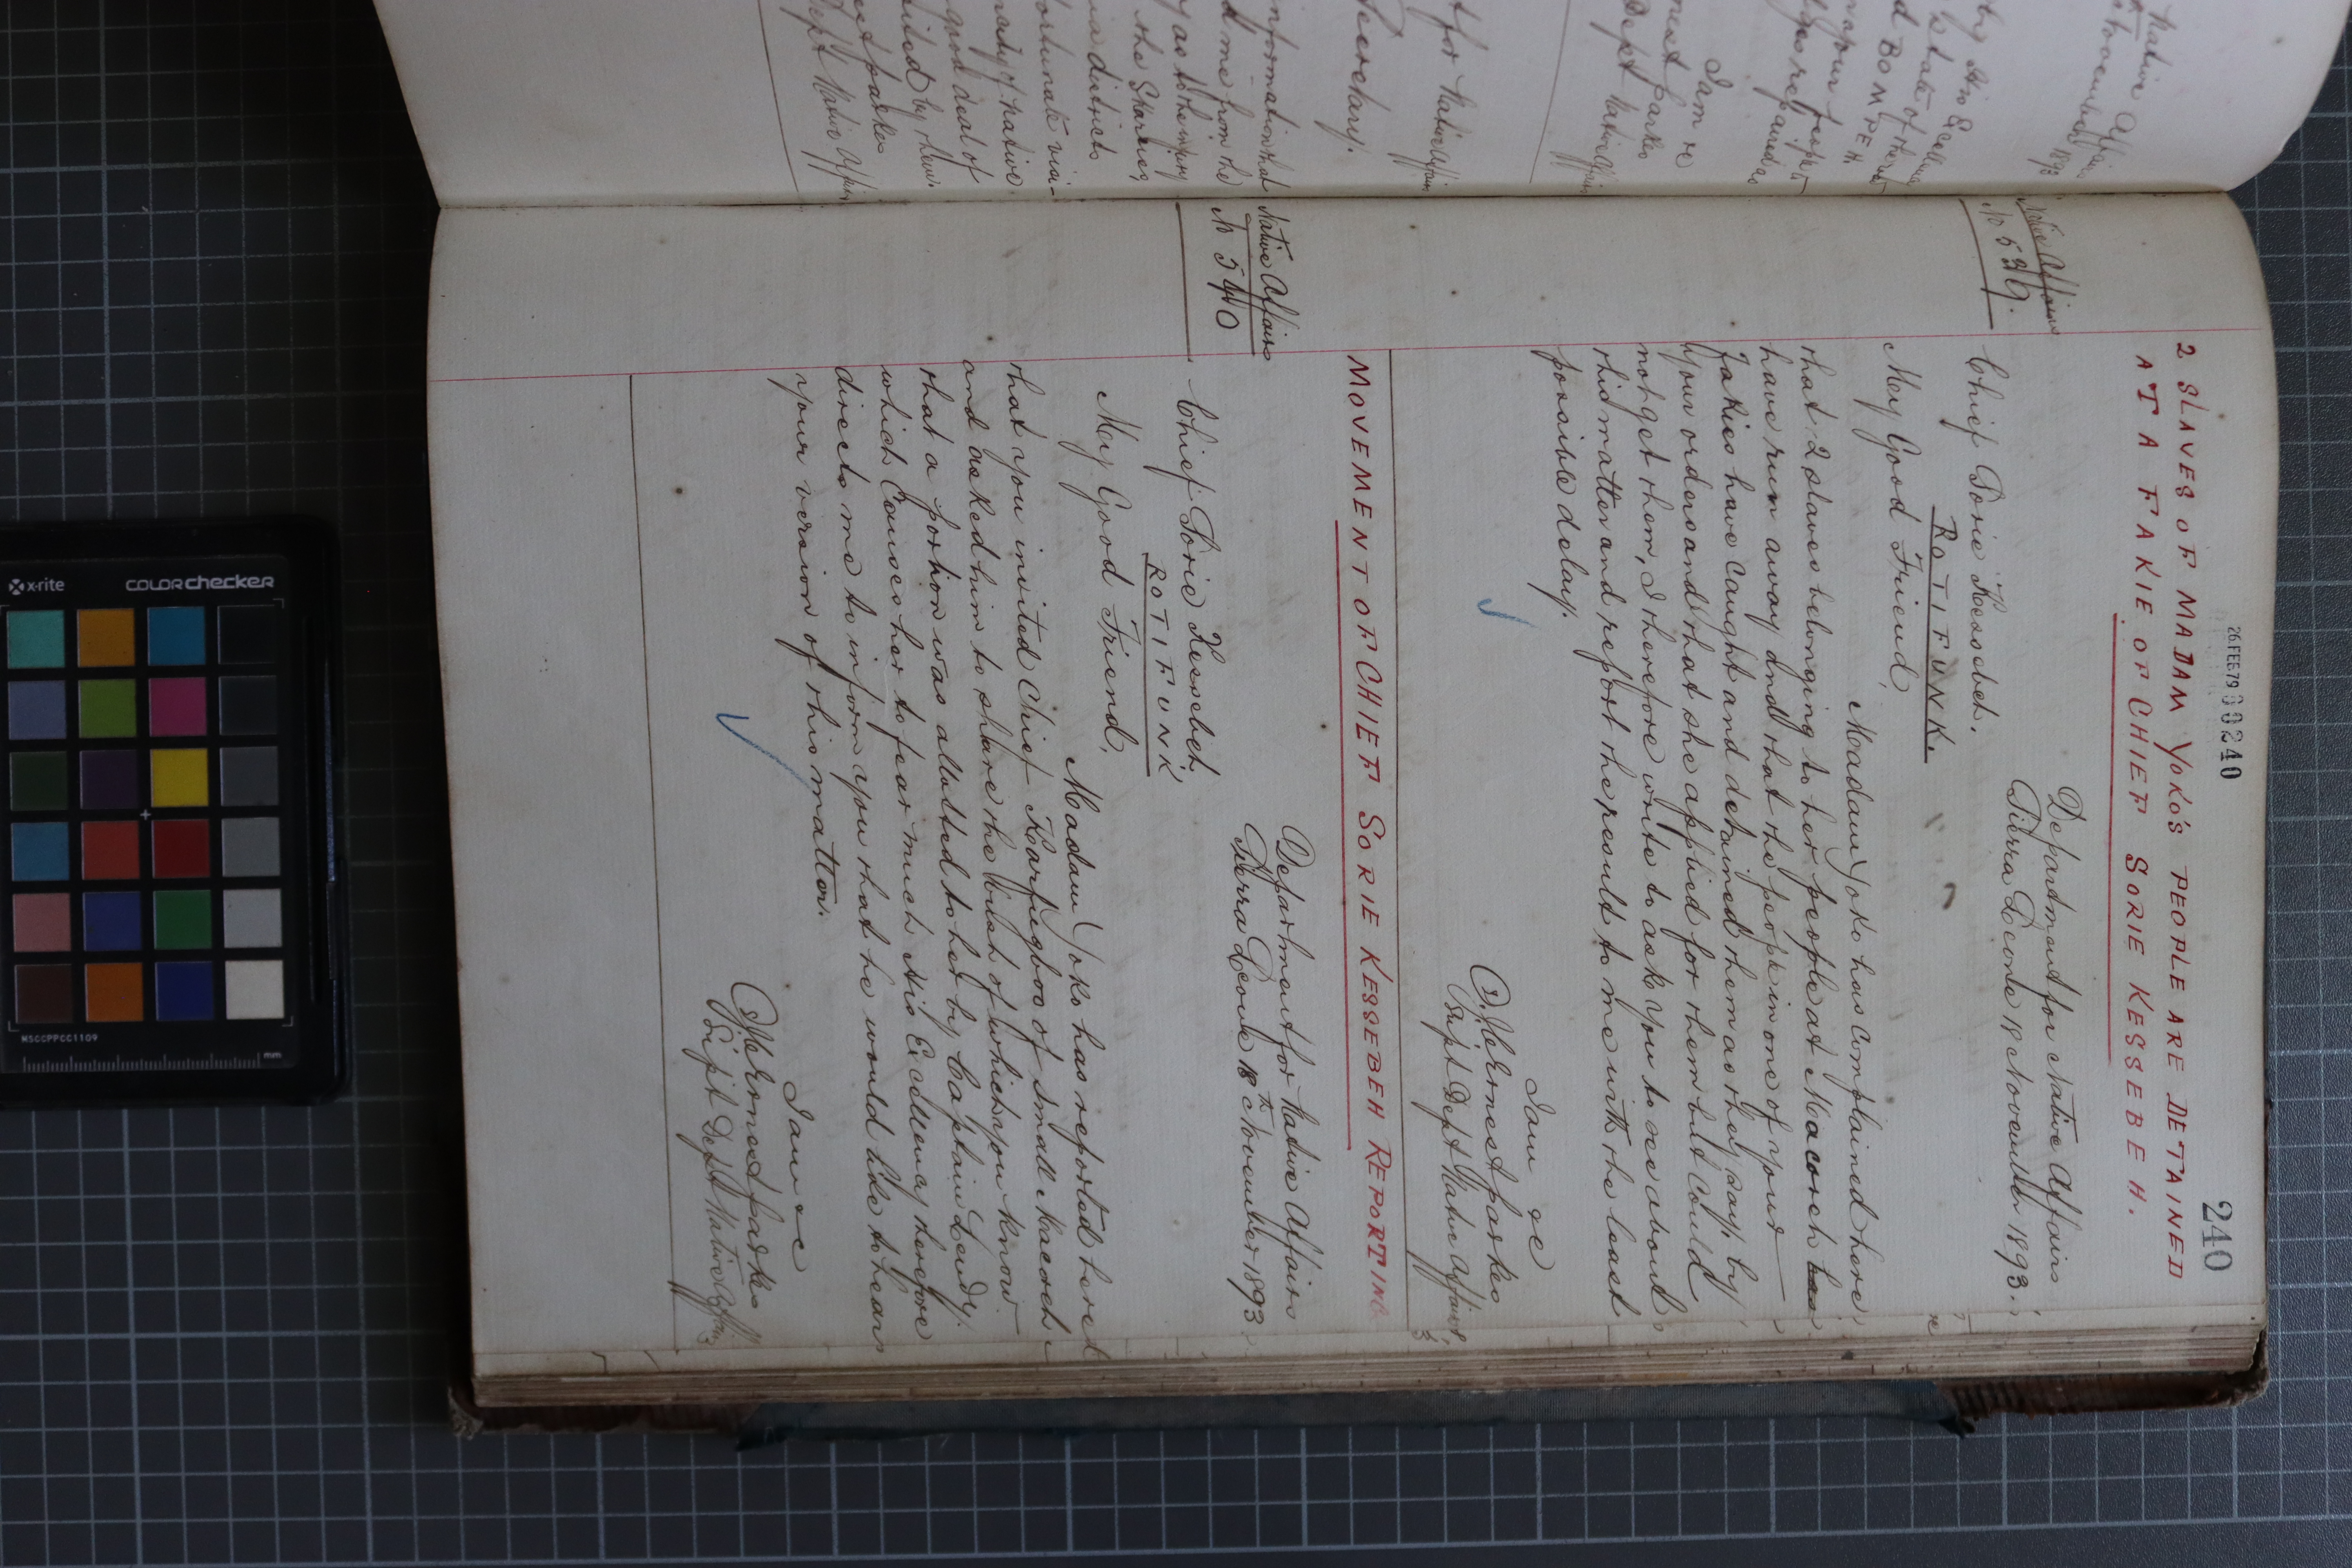 26 FEB 79 000240
240
2 SLAVES OF MADAM YOKO'S PEOPLE ARE DETAINED
AT A FAKIE OF CHIEF SORIE KESSEBEH.
Native Affairs
No 539.
Department for Native Affairs
Sierra Leone 18 November 1893.
Chief Sorie Kessebeh.
ROTIFUNK.
My Good Friend,
Madam Yoko has complained here
that 2 slaves belonging to her people at Macoroh
have run away and that the people in one of your
Fakies have caught and detained them as they say, by
your orders and that she applied for them but could
not get them, I therefore write to ask you to see about
this matter and report the result to me with the least
possible delay.
I am &c
J. C. Ernest Parkes
Supt Dept Native Affairs
MOVEMENT OF CHIEF SORIE KESSEBEH REPORTING
Native Affairs
No 540
Department for Native Affairs
Sierra Leone 18th November 1893
Chief Sorie Kessebeh
ROTIFUNK
My Good Friend,
Madam Yoko has reported here
that you invited Chief of Small
and asked him to share the of which you know
that a portion was allotted to her by Captain Lendy.
which causes her to fear much His Excellency therefore
directs me to inform you that he would like to hear
your version of this matter.
I am &c
J. C. Ernest Parkes
Supt Dept Native Affairs
Native Affairs
1893
BOMPEH
I am &c
Dept Native Affairs
for Native Affairs
Secretary.
information that
d me from the
y as to the injury
districts
of native
good deal of
by them.
Parkes
Dept Native Affairs
x-rite
colorchecker
MSCCPPCC1109
mm